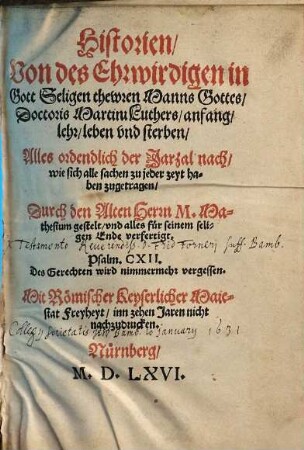 Historien/
Von des Ehrwirdigen in
Gott Seligen thewren Manns Gottes/
Doctoris Martini Luthers/ anfang/
lehr/ leben vnd sterben/
Alles ordendlich der Jarzal nach/
wie sich alle sachen zu jeder zeyt ha-
ben zugetragen/
Durch den Alten Herrn M. Ma-
thesium gestelt/ vnd alles für seinem seli-
gen Ende verfertigt.
Ex Testamento Reverendiss. D. Frid. Forneri suff. Bamb.
Psalm. CXII.
Des Gerechten wird nimmermehr vergessen.
Mit Römischer Keyserlicher Maie-
stat Freyheyt/ inn zehen Jaren nicht
nachzudrucken.
Collegij Societatis Jesu Bamb. January 1631
Nürnberg/
M. D. LXVI.